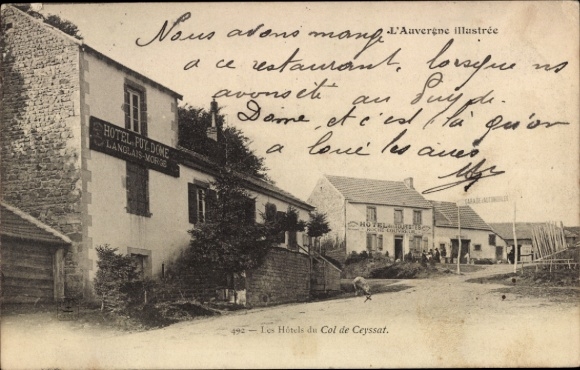 L'Auvergne illustrée
Nous avons mangé
a ce restaurant, lorsque ns
avons été au Puy de
Dome, et c'est là qu'on
a loué les ânes
HOTEL DU PUY. DOME
LANGLAIS-MOROGE
HOTEL des TOURISTES
GARAGE AUTOMOBILES
492 — Les Hôtels du Col de Ceyssat.